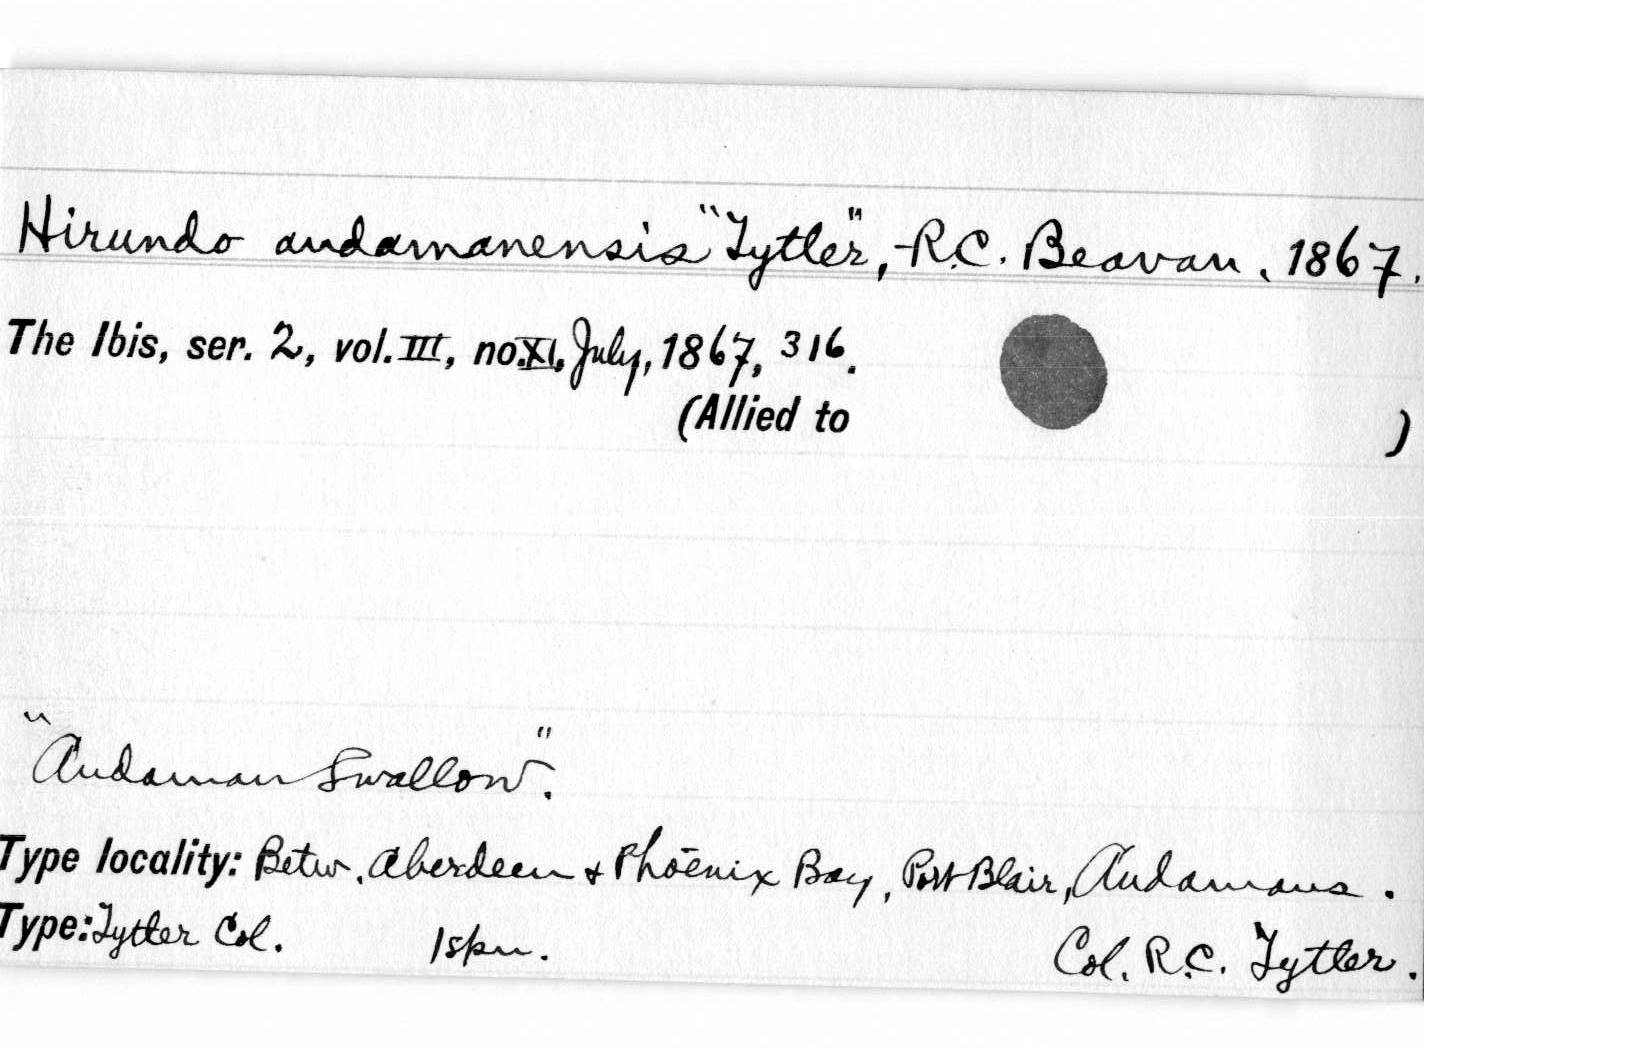 Hirundo andamanensis "Tytler", R.C. Beavan, 1867.
The Ibis, ser. 2, vol. III, no. XI, July, 1867, 316.
(Allied to )
"Andaman Swallow".
Type locality: Betw. Aberdeen & Phöenix Bay, Port Blair, Andamans.
Type: Tytler Col. 1 spn. Col. R.C. Tytler.